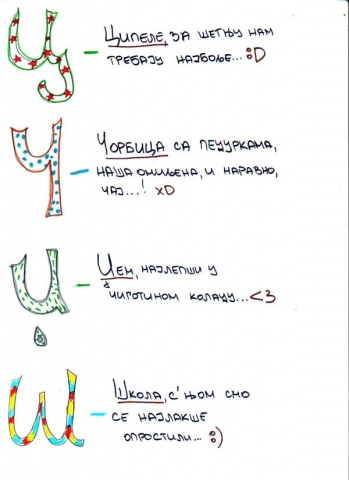 Ц - ЦИПЕЛЕ, ЗА ШЕТЊУ НАМ
ТРЕБАЈУ НАЈБОЉЕ... :D
Ч - ЧОРБИЦА СА ПЕЧУРКАМА,
НАША ОМИЉЕНА, И НАРАВНО,
ЧАЈ...! XD
Џ - ЏЕМ, НАЈЛЕПШИ У
ЧИГОТИНОМ КОЛАЧУ... <3
Ш - ШКОЛА, С' ЊОМ СМО
СЕ НАЈЛАКШЕ
ОПРОСТИЛИ... :)